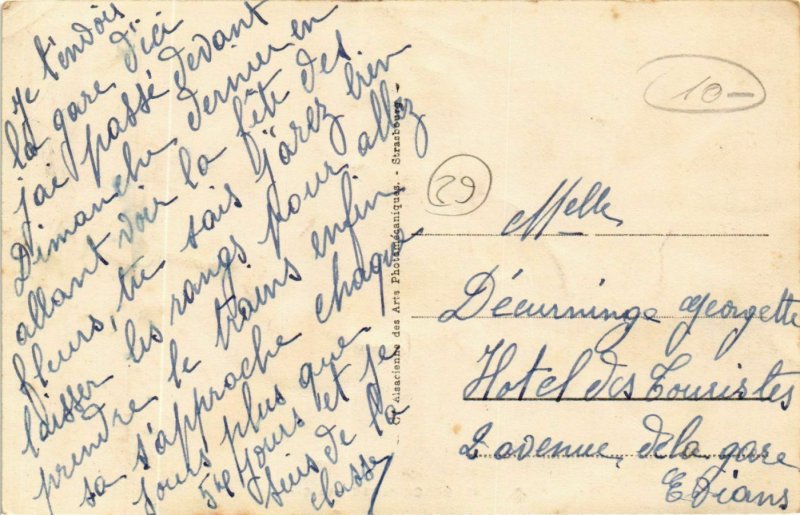 Je t'endois
la gare d'ici
jai passé devant
Dimanche dernier en
allant voir la fête des
fleurs, tu sais j'arez bien
laisser les rangs pour allez
prendre le trains enfin
sa s'approche chaque
jours plus que
54 jours et je
suis de la
classe
Alsacienne des Arts Photomécaniques. - Strasbourg. -
10-
29
Melle
Décurninge Georgette
Hotel des Touristes
2 avenue, de la gare
Evians